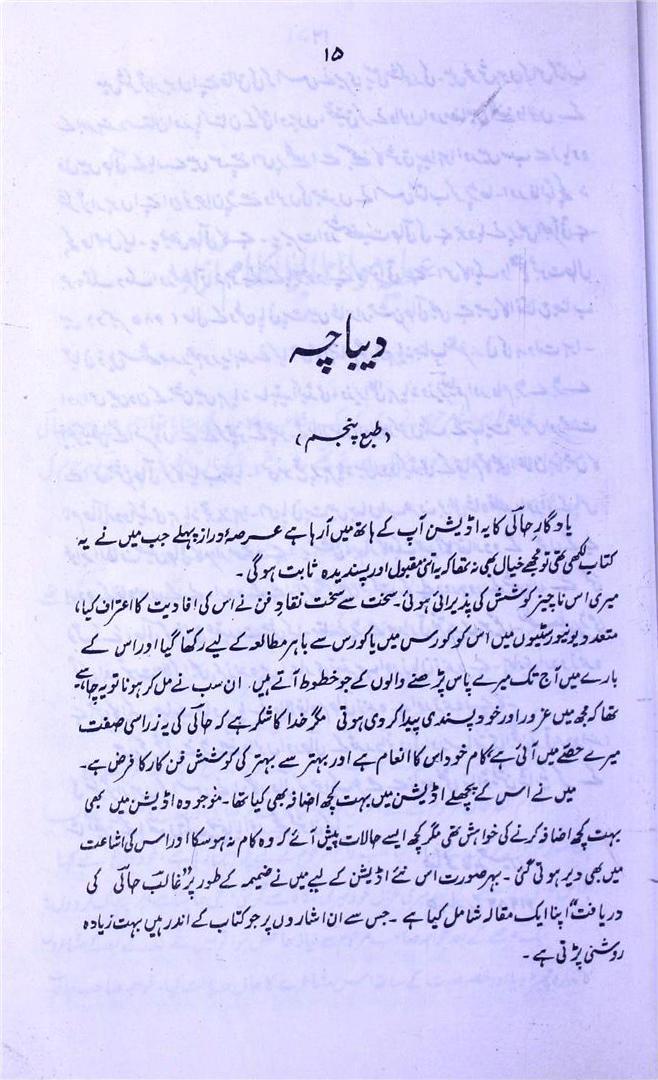 ۱۵
دیباچہ
(طبع پنجم)
یادگار حالؔی کا یہ اڈیشن آپ کے ہاتھ میں آرہا ہے عرصۂ دراز پہلے جب میں نے یہ
کتاب لکھی تھی تو مجھے خیال بھی نہ تھا کہ یہ اتنی مقبول اور پسندیدہ ثابت ہوگی۔
میری اس ناچیز کوشش کی پذیرائی ہوئی۔ سخت سے سخت نقادِ فن نے اس کی افادیت کا اعتراف کیا،
متعدد یونیورسٹیوں میں اس کو کورس میں یا کورس سے باہر مطالعہ کے لیے رکھا گیا اور اس کے
بارے میں آج تک میرے پاس پڑھنے والوں کے جو خطوط آتے ہیں ان سب نے مل کر ہونا تو یہ چاہیے
تھا کہ مجھ میں غرور اور خود پسندی پیدا کردی ہوتی مگر خدا کا شکر ہے کہ حالؔی کی یہ ذرا سی صفت
میرے حصّے میں آئی ہے کام خود اس کا انعام ہے اور بہتر سے بہتر کی کوشش فن کار کا فرض ہے۔
میں نے اس کے پچھلے اڈیشن میں بہت کچھ اضافہ بھی کیا تھا۔ موجودہ اڈیشن میں بھی
بہت کچھ اضافہ کرنے کی خواہش تھی مگر کچھ ایسے حالات پیش آئے کہ وہ کام نہ ہوسکا اور اس کی اشاعت
میں بھی دیر ہوتی گئی۔ بہر صورت اس نئے اڈیشن کے لیے میں نے ضمیمہ کے طور پر ”غالبؔ حالؔی کی
دریافت“ اپنا ایک مقالہ شامل کیا ہے۔ جس سے ان اشاروں پر جو کتاب کے اندر ہیں بہت زیادہ
روشنی پڑتی ہے۔